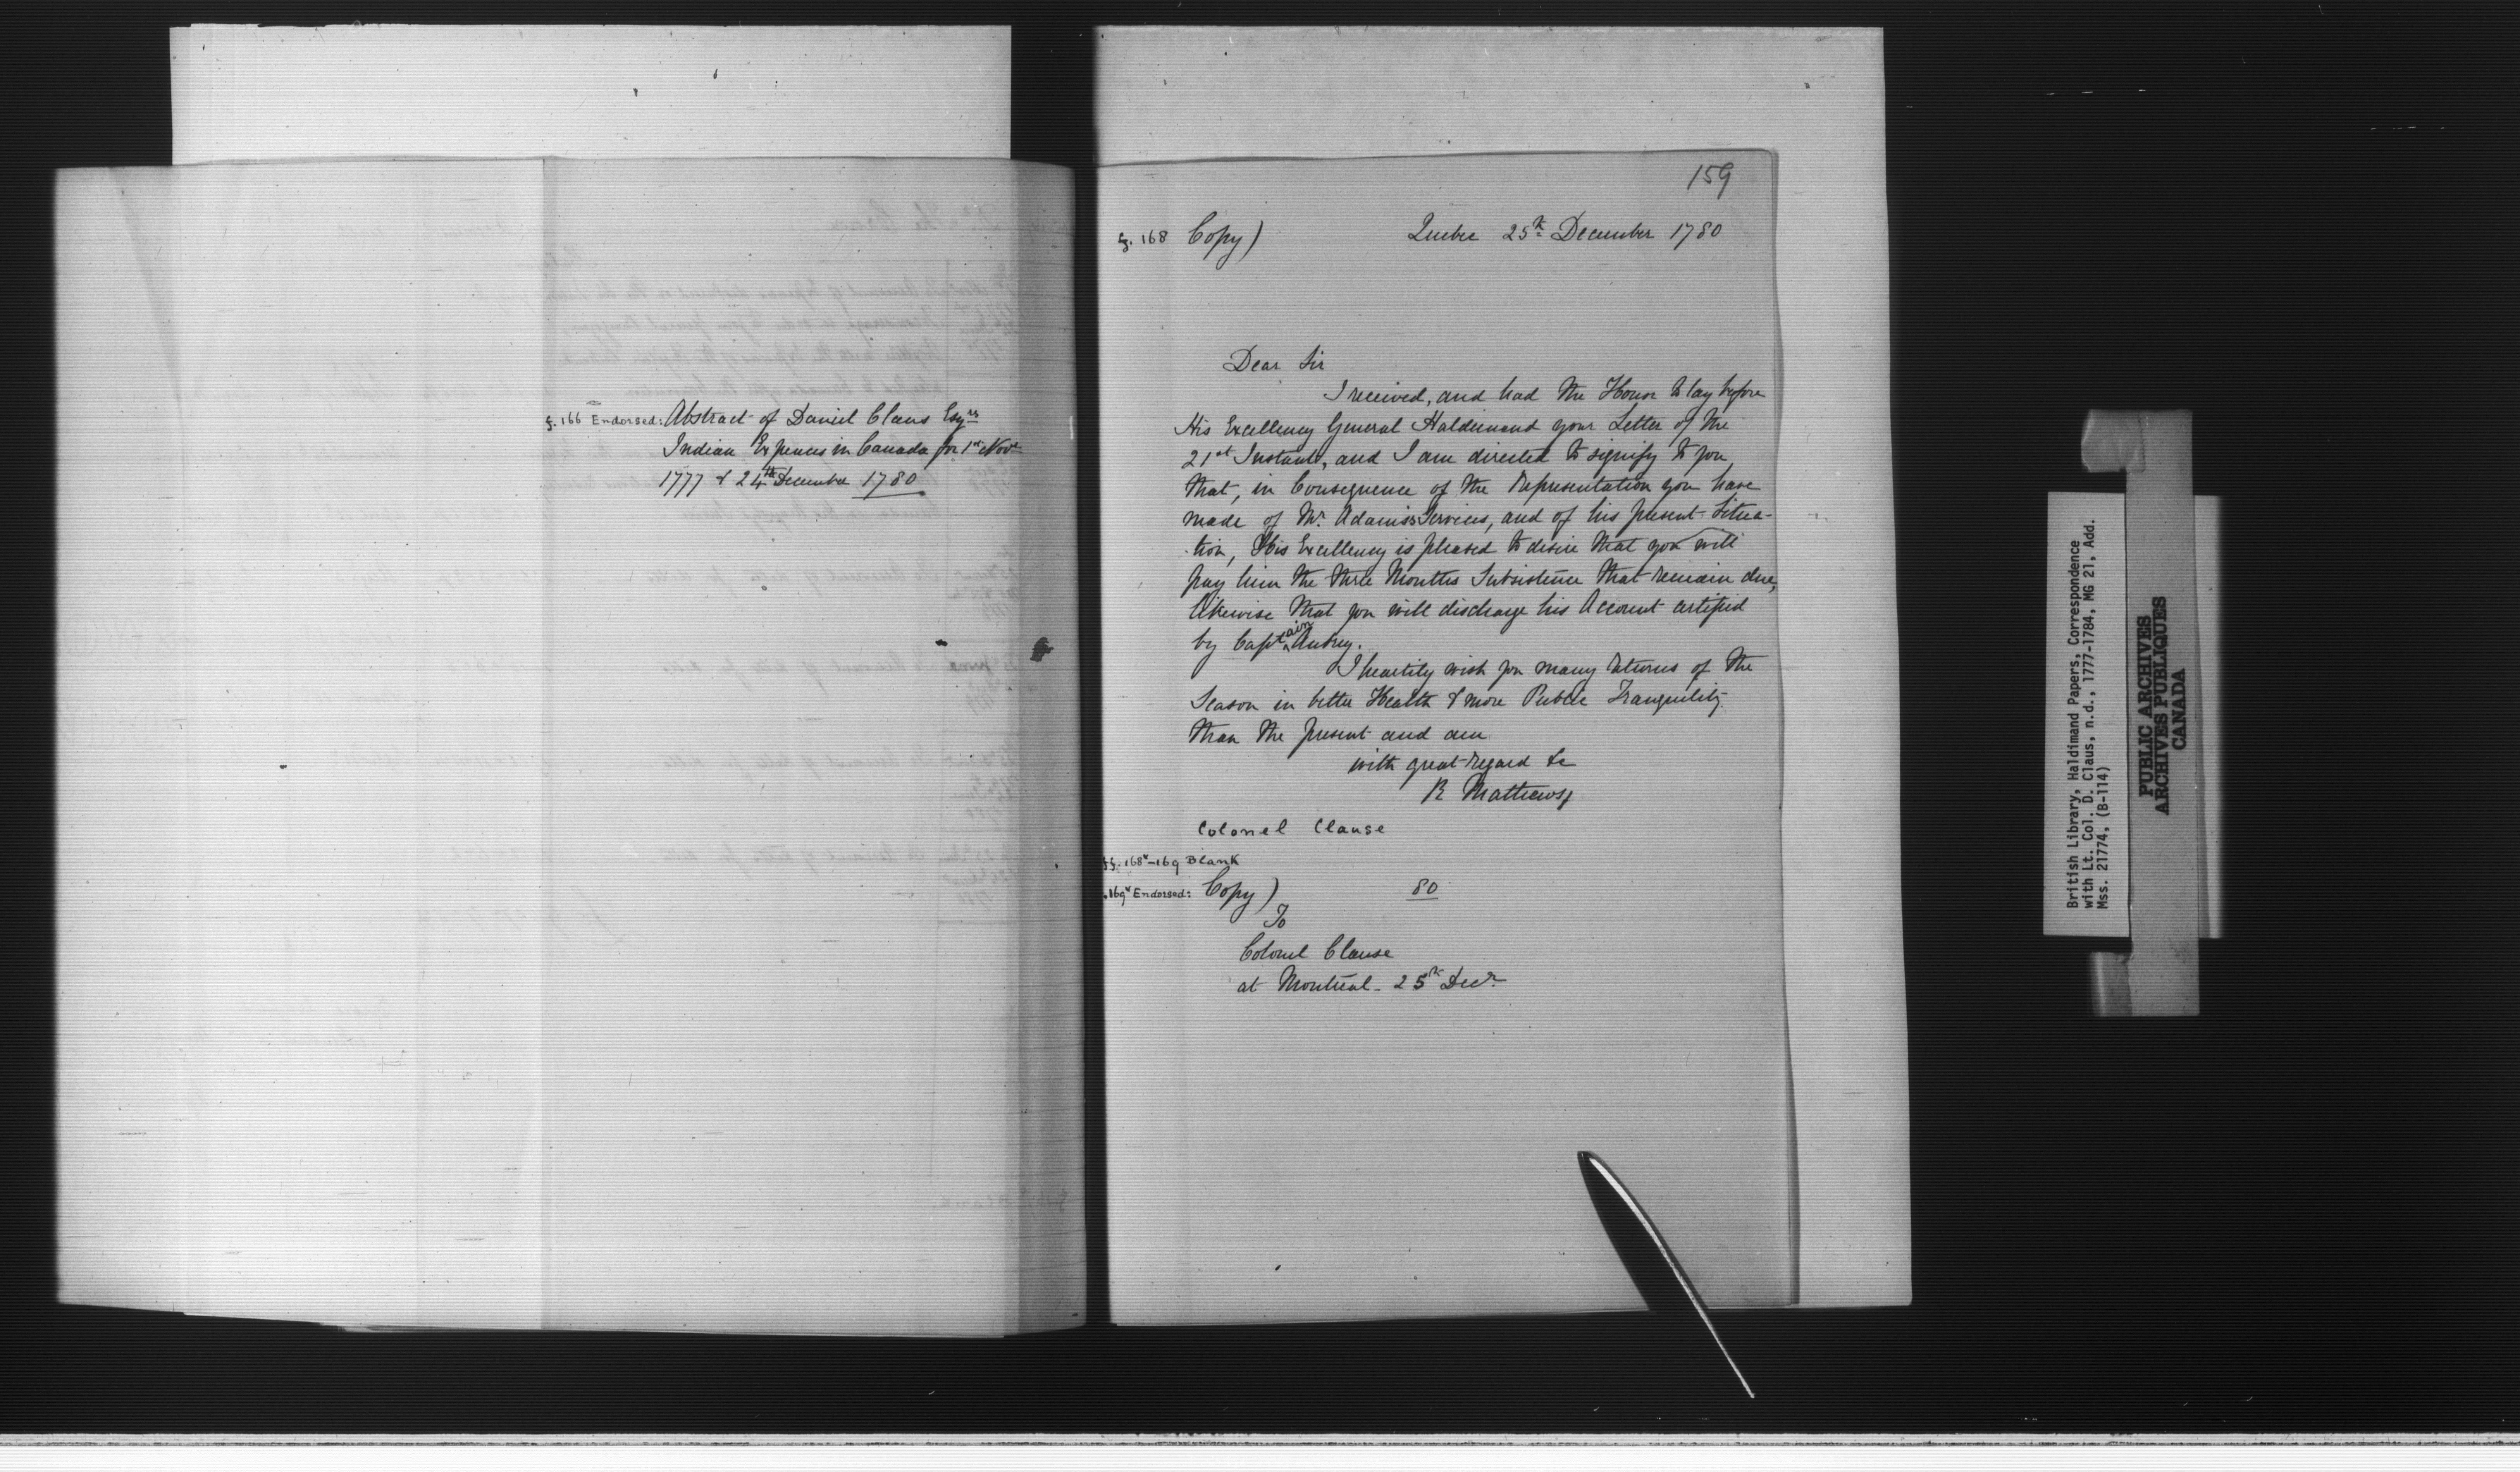 f. 166 Endorsed: Abstract of Daniel Claus Esqrs
Indian Expences in Canada for 1st Novr
1777 & 24th December 1780
159
f. 168 Copy) Quebec 25th December 1780
Dear Sir
I received, and had the Honor to lay before
His Excellency General Haldimand your Letter of the
21st Instant, and I am directed to signify to you
that, in Consequence of the Representation you have
made of Mr. Adams's Services, and of his present Situa-
-tion, His Excellency is pleased to desire that you will
pay him the three Months Subsistence that remain due,
likewise that you will discharge his Account certified
by Captain Aubrey.
I heartily wish you many returns of the
Season in better Health & more Public Tranquility
than the present and am
with great regard &c
R Mathews
Colonel Clause
ff. 168v-169 Blank
f. 169v Endorsed: Copy) 80
To
Colonel Clause
at Montreal - 25th Decr.
British Library, Haldimand Papers, Correspondence
with Lt. Col. D. Claus, n.d., 1777-1784, MG 21, Add.
Mss. 21774, (B-114)
PUBLIC ARCHIVES
ARCHIVES PUBLIQUES
CANADA